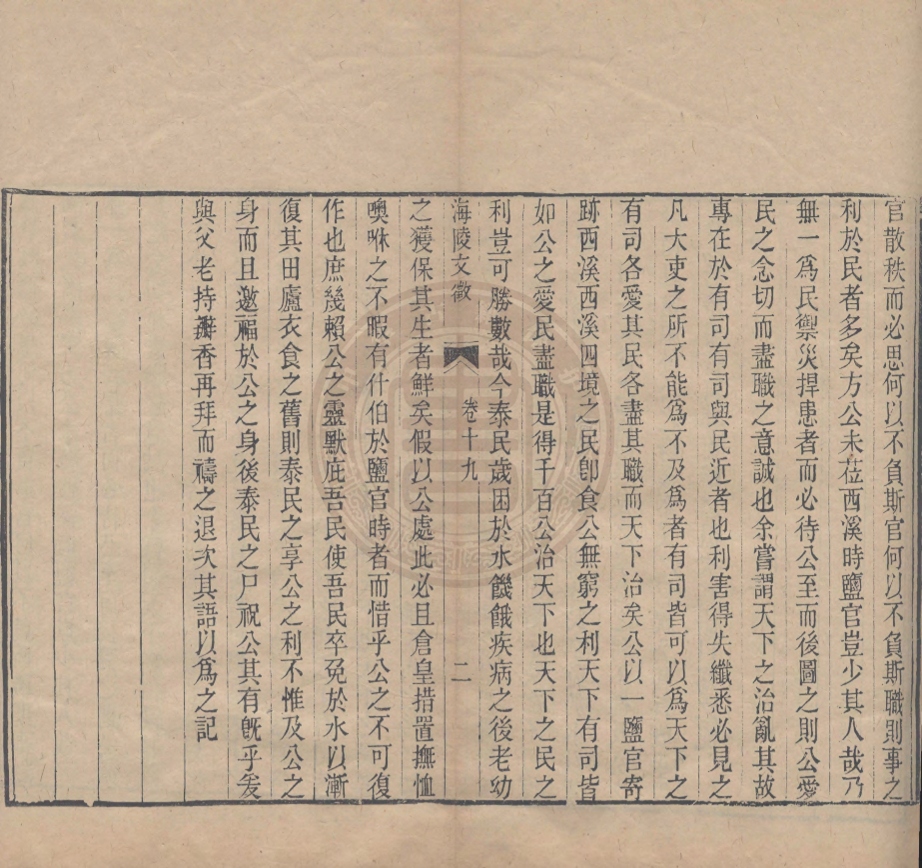 官散秩而必思何以不負斯官何以不負斯職則事之
利於民者多矣方公未莅西溪時鹽官豈少其人哉乃
無一爲民禦災捍患者而必待公至而後圖之則公愛
民之念切而盡職之意誠也余嘗謂天下之治亂其故
專在於有司有司與民近者也利害得失纖悉必見之
凡大吏之所不能爲不及爲者有司皆可以爲天下之
有司各愛其民各盡其職而天下治矣公以一鹽官寄
跡西溪西溪四境之民卽食公無窮之利天下有司皆
如公之愛民盡職是得千百公治天下也天下之民之
利豈可勝數哉今泰民歲困於水饑餓疾病之後老幼
海陵文徵 卷十九 二
之獲保其生者鮮矣假以公處此必且倉皇措置撫恤
噢咻之不暇有什伯於鹽官時者而惜乎公之不可復
作也庶幾賴公之靈默庇吾民使吾民卒免於水以漸
復其田廬衣食之舊則泰民之享公之利不惟及公之
身而且邀福於公之身後泰民之尸祝公其有旣乎爰
與父老持瓣香再拜而禱之退次其語以爲之記